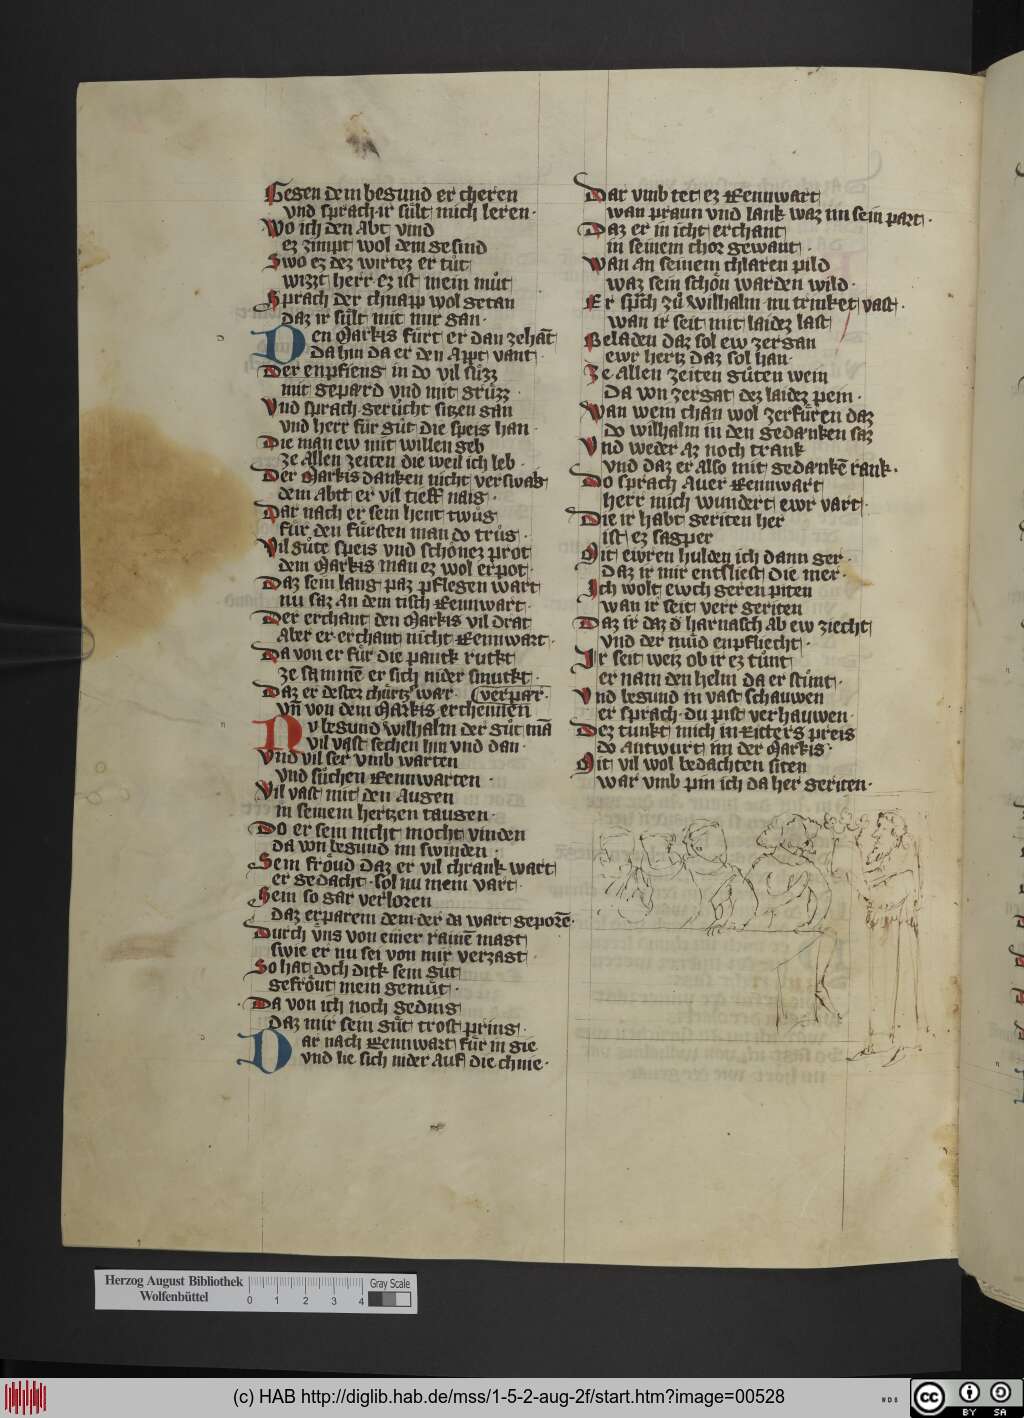 Gegen dem begund er cheren
vnd sprach ir suͤlt mich leren·
Wo ich den Abt vind
ez zimpt wol dem gesind
Swo ez dez wirtez er tuͤt
wizzt herr ez ist mein muͤt
Sprach der chnapp wol getan
daz ir suͤlt mit mir gan·
Den Markis fuͤrt er dan zehāt
Da hin da er den Appt vant·
Der enpfieng in do vil suͤzz
mit gepard vnd mit gruͤzz·
Vnd sprach geruͤcht sitzen gan
vnd herr fuͤr guͤt die speis han·
Die man ew mit willen geb
ze Allen zeiten die weil ich leb·
Der Markis danken nicht verswaig
dem Abtt er vil tieff naig·
Dar nach er sein hent twuͤg
fuͤr den fuͤrsten man do truͤg·
Vil guͤte speis vnd schoͤnez prot
dem Markis man ez wol erpot·
Daz sein lang paz pflegen wart
nu saz An dem tisch Rennwart·
Der erchant den Markis vil drat
Aber er erchant nicht Rennwart·
Da von er fuͤr die panck ruckt
ze sammē er sich nider smuckt·
Daz er dester chuͤrtz war·
verpar·
vn̄ von dem Markis erchennen
Nv begund Wilhalm der guͤt mā
vil vast sechen hin vnd dan·
Vnd vil ser vmb warten
vnd suͤchen Rennwarten·
Vil vast mit den Augen
in seinem hertzen taugen·
Do er sein nicht mocht vinden
da von begund im swinden·
Sein froͤud daz er vil chrank wart
er gedacht·sol nu mein vart·
Sein so gar verloren
daz erparem dem der da wart geporē·
Durch vns von einer rainē magt
swie er nu sei von mir verzagt·
So hat doch dick sein guͤt
gefroͤut mein gemuͤt·
Da von ich noch geding
daz mir sein guͤt trost pring·
Dar nach Rennwart fuͤr in gie
vnd lie sich nider Auf die chnie·
Dar vmb tet ez Rennwart
wan praun vnd lank waz im sein part·
Daz er in icht erchant
in seinem chor gewant·
Wan An seinem chlaren pild
waz sein schoͤn warden wild·
Er sp̄ch zuͤ Wilhalm nu trinket vast·
wan ir seit mit laidez last
Beladen daz sol ew zergan
ewr hertz daz sol han·
Ze Allen zeiten guͤten wein
Da von zergat dez laidez pein·
Wan wein chan wol zerfuͤren daz
do wilhalm in den gedanken saz
Vnd weder Az noch trank
vnd daz er Also mit gedankē rank·
Do sprach Auer Rennwart
herr mich wundert ewr vart·
Die ir habt geriten her
ist ez sagper
Mit ewren hulden ich dann ger·
Daz ir mir entsliest die mer·
Ich wolt ewch geren piten
wan ir seit verr geriten
Daz ir daz d harnasch ab ew ziecht
vnd der muͤd enpfliecht·
Ir seit weiz ob ir ez tuͤnt
er nam den helm da er stuͤnt·
Vnd begund in vast schauwen
er sprach·du pist verhauwen·
Dez tunkt mich in Ritters preis
do Antwurt im der Markis·
Mit vil wol bedachten siten
war vmb pin ich da her geriten·
Herzog August Bibliothek
Wolfenbüttel
0 1 2 3 4
Gray Scale
(c) HAB http://diglib.hab.de/mss/1-5-2-aug-2f/start.htm?image=00528
WDB
cc BY SA